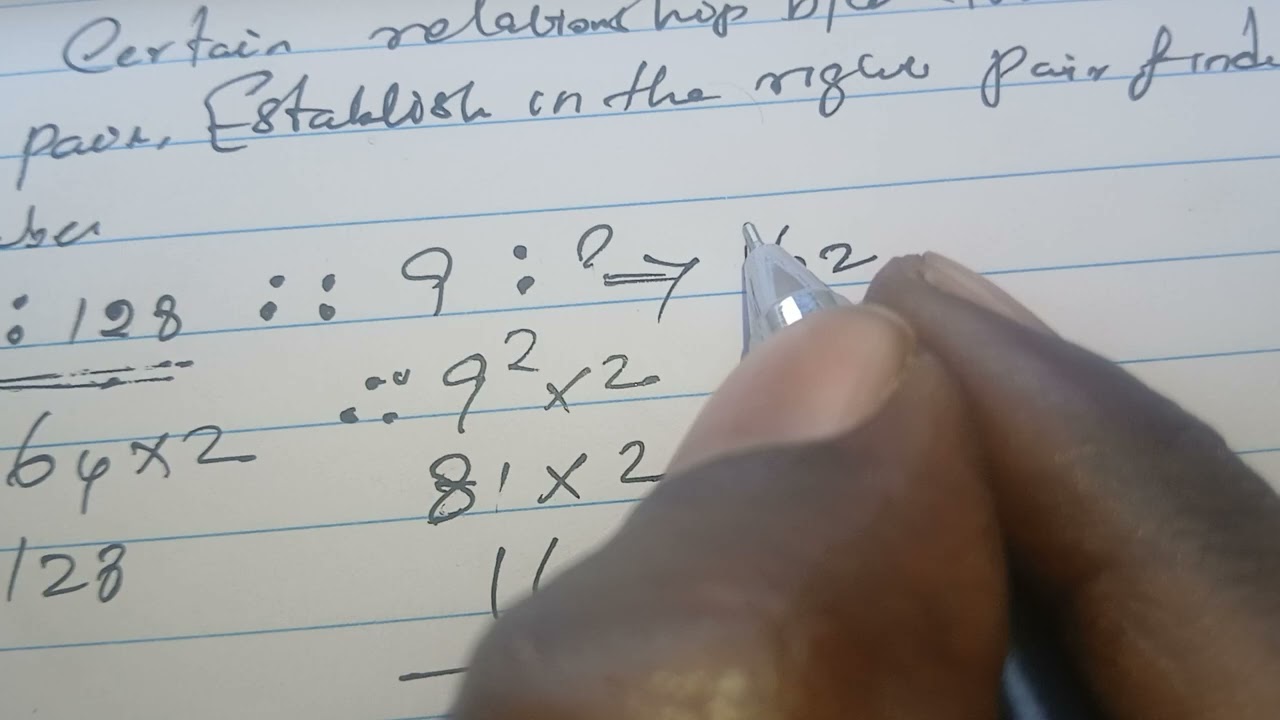 Certain relationshop b/w
pair. Establish in the right pair find
ber
: 128 :: 9 : ? ⇒ 162
64 x 2 ∴ 9² x 2
128 81 x 2